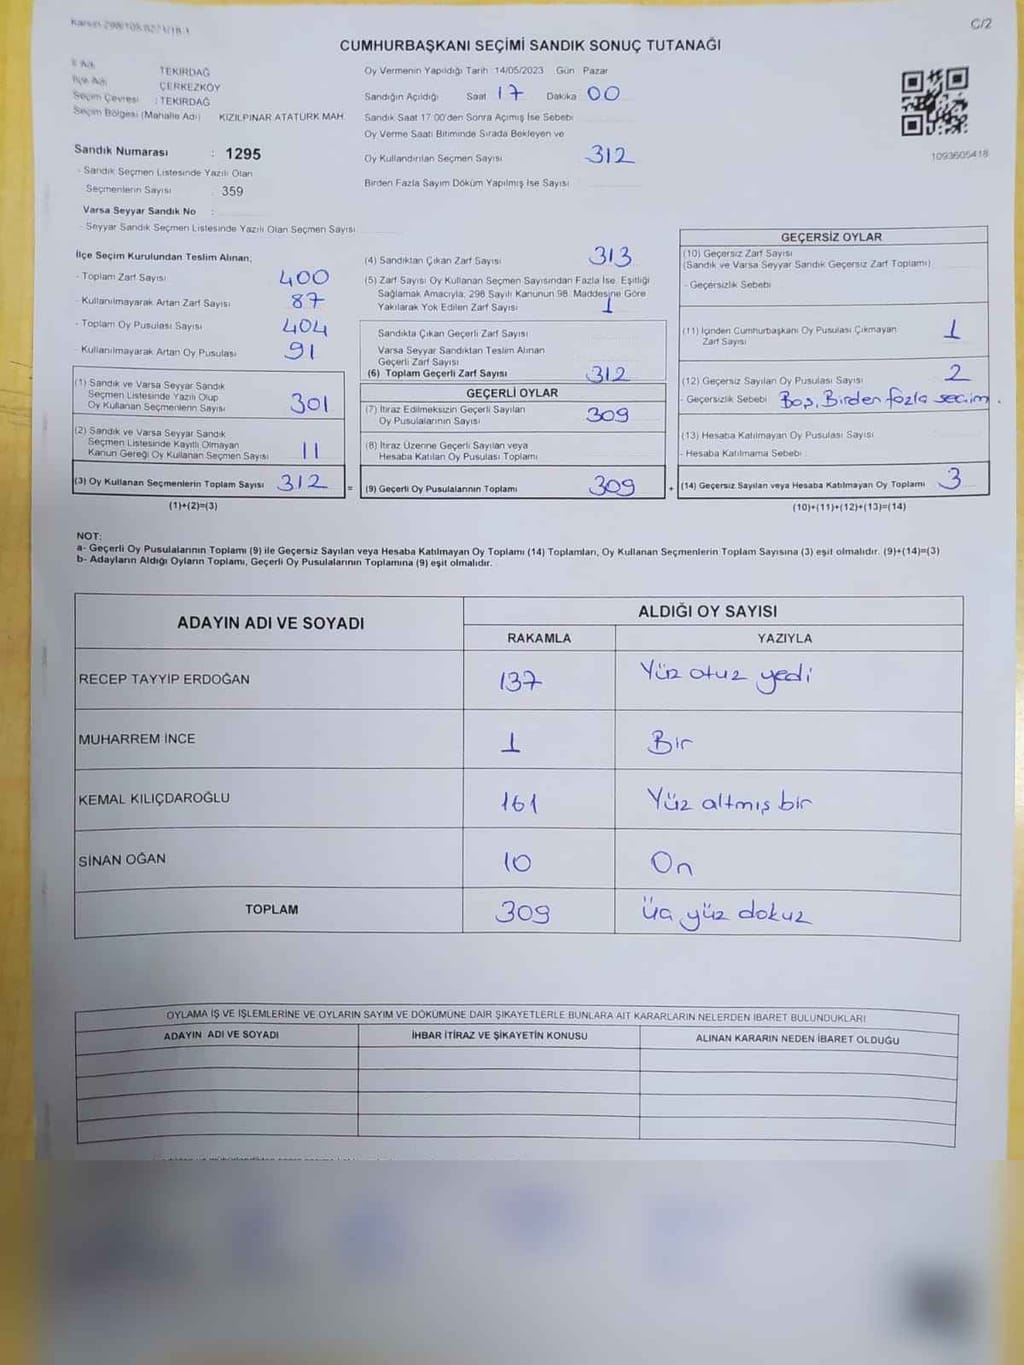 C/2
CUMHURBAŞKANI SEÇİMİ SANDIK SONUÇ TUTANAĞI
İl Adı TEKİRDAĞ
İlçe Adı ÇERKEZKÖY
Seçim Çevresi : TEKİRDAĞ
Seçim Bölgesi (Mahalle Adı) KIZILPINAR ATATÜRK MAH.
Sandık Numarası : 1295
- Sandık Seçmen Listesinde Yazılı Olan
Seçmenlerin Sayısı 359
Varsa Seyyar Sandık No :
- Seyyar Sandık Seçmen Listesinde Yazılı Olan Seçmen Sayısı
Oy Vermenin Yapıldığı Tarih :14/05/2023 Gün Pazar
Sandığın Açıldığı Saat 17 Dakika 00
Sandık Saat 17:00'den Sonra Açımış İse Sebebi
Oy Verme Saati Bitiminde Sırada Bekleyen ve
Oy Kullandırılan Seçmen Sayısı 312
Birden Fazla Sayım Döküm Yapılmış İse Sayısı
1093605418
İlçe Seçim Kurulundan Teslim Alınan;
- Toplam Zarf Sayısı 400
- Kullanılmayarak Artan Zarf Sayısı 87
- Toplam Oy Pusulası Sayısı 404
- Kullanılmayarak Artan Oy Pusulası 91
(1) Sandık ve Varsa Seyyar Sandık
Seçmen Listesinde Yazılı Olup
Oy Kullanan Seçmenlerin Sayısı 301
(2) Sandık ve Varsa Seyyar Sandık
Seçmen Listesinde Kayıtlı Olmayan
Kanun Gereği Oy Kullanan Seçmen Sayısı 11
(3) Oy Kullanan Seçmenlerin Toplam Sayısı 312 =
(1)+(2)=(3)
(4) Sandıktan Çıkan Zarf Sayısı 313
(5) Zarf Sayısı Oy Kullanan Seçmen Sayısından Fazla İse, Eşitliği
Sağlamak Amacıyla, 298 Sayılı Kanunun 98. Maddesine Göre
Yakılarak Yok Edilen Zarf Sayısı 1
Sandıkta Çıkan Geçerli Zarf Sayısı
Varsa Seyyar Sandıktan Teslim Alınan
Geçerli Zarf Sayısı
(6) Toplam Geçerli Zarf Sayısı 312
GEÇERLİ OYLAR
(7) İtiraz Edilmeksizin Geçerli Sayılan
Oy Pusulalarının Sayısı 309
(8) İtiraz Üzerine Geçerli Sayılan veya
Hesaba Katılan Oy Pusulası Toplamı
(9) Geçerli Oy Pusulalarının Toplamı 309 +
GEÇERSİZ OYLAR
(10) Geçersiz Zarf Sayısı
(Sandık ve Varsa Seyyar Sandık Geçersiz Zarf Toplamı)
- Geçersizlik Sebebi
(11) İçinden Cumhurbaşkanı Oy Pusulası Çıkmayan
Zarf Sayısı 1
(12) Geçersiz Sayılan Oy Pusulası Sayısı 2
- Geçersizlik Sebebi Boş, Birden fazla seçim.
(13) Hesaba Katılmayan Oy Pusulası Sayısı
- Hesaba Katılmama Sebebi
(14) Geçersiz Sayılan veya Hesaba Katılmayan Oy Toplamı 3
(10)+(11)+(12)+(13)=(14)
NOT:
a- Geçerli Oy Pusulalarının Toplamı (9) ile Geçersiz Sayılan veya Hesaba Katılmayan Oy Toplamı (14) Toplamları, Oy Kullanan Seçmenlerin Toplam Sayısına (3) eşit olmalıdır. (9)+(14)=(3)
b- Adayların Aldığı Oyların Toplamı, Geçerli Oy Pusulalarının Toplamına (9) eşit olmalıdır.
ADAYIN ADI VE SOYADI ALDIĞI OY SAYISI
RAKAMLA YAZIYLA
RECEP TAYYİP ERDOĞAN 137 Yüz otuz yedi
MUHARREM İNCE 1 Bir
KEMAL KILIÇDAROĞLU 161 Yüz altmış bir
SİNAN OĞAN 10 On
TOPLAM 309 üç yüz dokuz
OYLAMA İŞ VE İŞLEMLERİNE VE OYLARIN SAYIM VE DÖKÜMÜNE DAİR ŞİKAYETLERLE BUNLARA AİT KARARLARIN NELERDEN İBARET BULUNDUKLARI
ADAYIN ADI VE SOYADI İHBAR İTİRAZ VE ŞİKAYETİN KONUSU ALINAN KARARIN NEDEN İBARET OLDUĞU